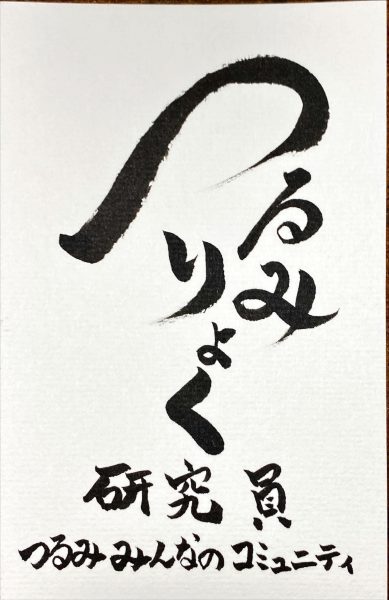 つるみ
りょく
研究員
つるみみんなのコミュニティ